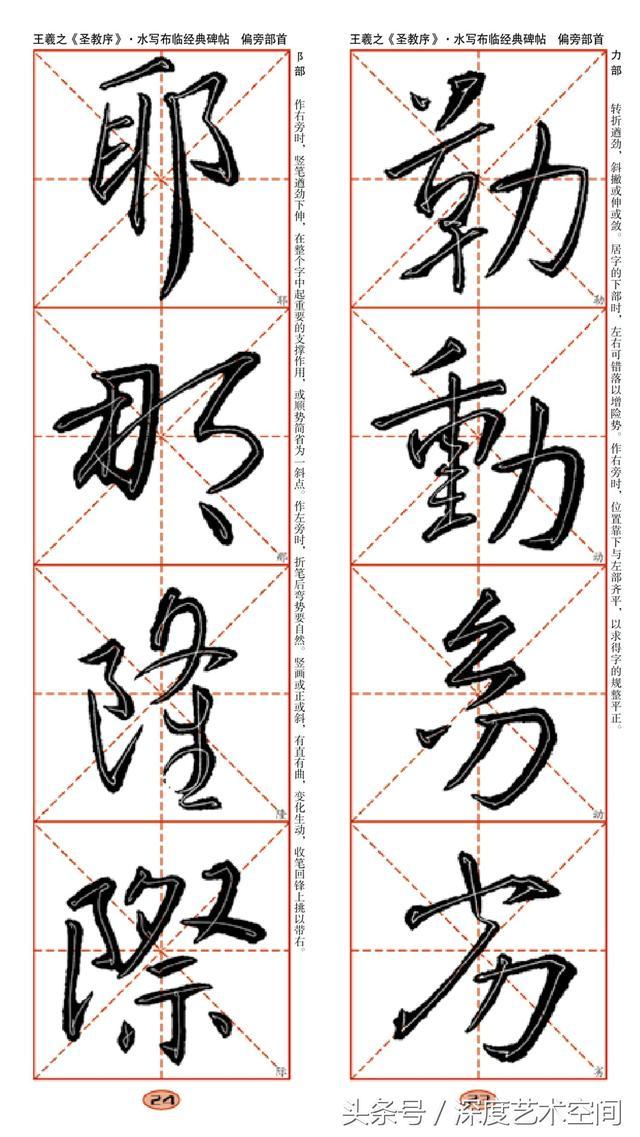 王羲之《圣教序》·水写布临经典碑帖 偏旁部首
阝部
作右旁时，竖笔遒劲下伸，在整个字中起重要的支撑作用，或顺势简省为一斜点。作左旁时，折笔后弯势要自然。竖画或正或斜，有直有曲，变化生动，收笔回锋上挑以带右。
耶
耶
那
那
隆
隆
際
际
24
王羲之《圣教序》·水写布临经典碑帖 偏旁部首
力部
转折遒劲，斜撇或伸或敛。居字的下部时，左右可错落以增险势。作右旁时，位置靠下与左部齐平，以求得字的规整平正。
勒
勒
動
动
幼
劣
劣
头条号／深度艺术空间